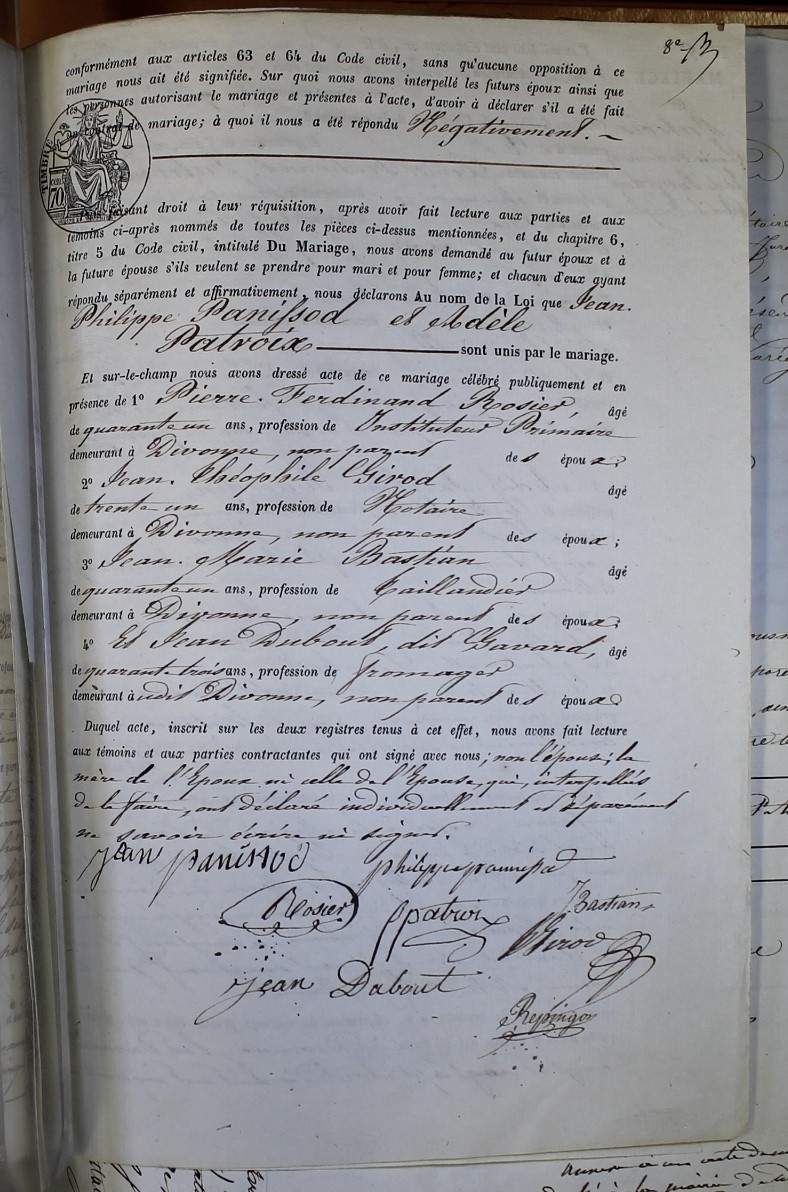 8e
conformément aux articles 63 et 64 du Code civil, sans qu'aucune opposition à ce
mariage nous ait été signifiée. Sur quoi nous avons interpellé les futurs époux ainsi que
les personnes autorisant le mariage et présentes à l'acte, d'avoir à déclarer s'il a été fait
un contrat de mariage; à quoi il nous a été répondu Négativement.
TIMBRE
70
faisant droit à leur réquisition, après avoir fait lecture aux parties et aux
témoins ci-après nommés de toutes les pièces ci-dessus mentionnées, et du chapitre 6,
titre 5 du Code civil, intitulé Du Mariage, nous avons demandé au futur époux et à
la future épouse s'ils veulent se prendre pour mari et pour femme; et chacun d'eux ayant
répondu séparément et affirmativement, nous déclarons Au nom de la Loi que Jean.
Philippe Panissod et Adèle
Patroix sont unis par le mariage.
Et sur-le-champ nous avons dressé acte de ce mariage célébré publiquement et en
présence de 1º Pierre. Ferdinand Rosier, âgé
de quarante un ans, profession de Instituteur Primaire
demeurant à Divonne, non parent des époux;
2º Jean. Théophile Girod âgé
de trente un ans, profession de Notaire
demeurant à Divonne, non parent des époux;
3º Jean. Marie Bastian âgé
de quarante un ans, profession de Taillandier
demeurant à Divonne, non parent des époux;
4º Et Jean Dubout, dit Gavard, âgé
de quarante trois ans, profession de fromager
demeurant à udit Divonne, non parent des époux
Duquel acte, inscrit sur les deux registres tenus à cet effet, nous avons fait lecture
aux témoins et aux parties contractantes qui ont signé avec nous; non l'épouse, la
mère de l'Epoux ni celle de l'Epouse, qui, interpellés
de le faire, ont déclaré individuellement et séparément
ne savoir écrire ni signer.
jean panissod philippe pannissod
Rosier patroix Bastian
Girod
jean Dabout